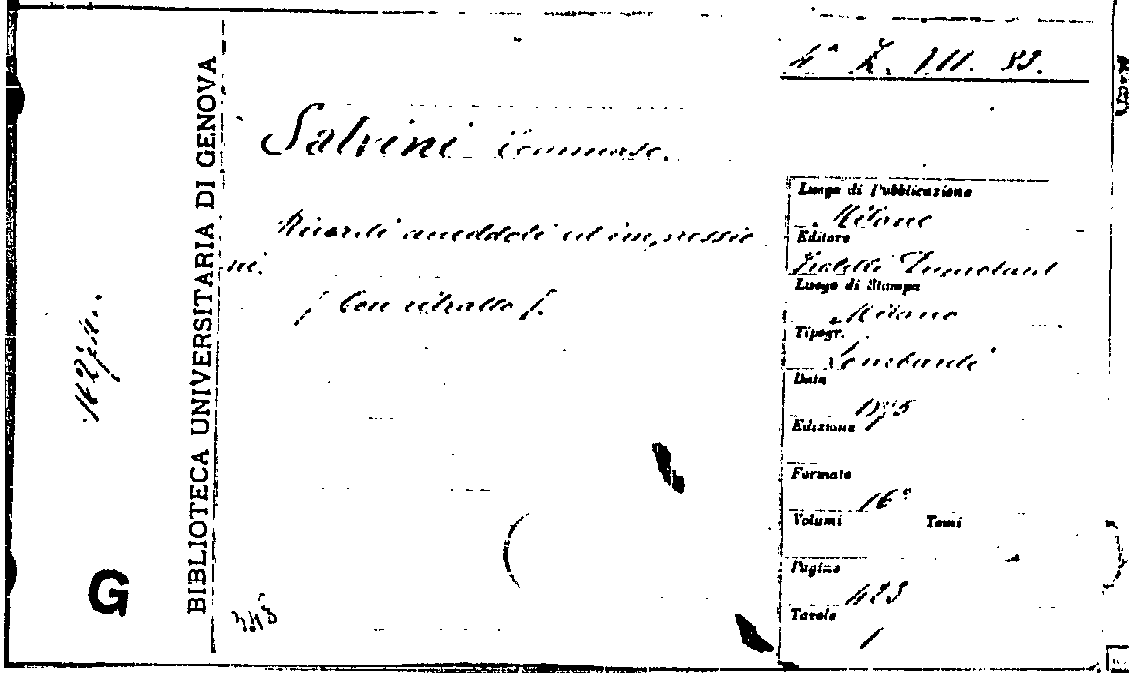 4ª Z. III. 33.
Salvini Tommaso.
Ricordi aneddoti ed impressio
ni.
(Con ritratto).
BIBLIOTECA UNIVERSITARIA DI GENOVA
G
Luogo di Pubblicazione
Milano
Editore
Fratelli Dumolard
Luogo di Stampa
Milano
Tipogr.
Lombardi
Data
1895
Edizione
Formato
16º
Volumi Tomi
Pagine
423
Tavole
1